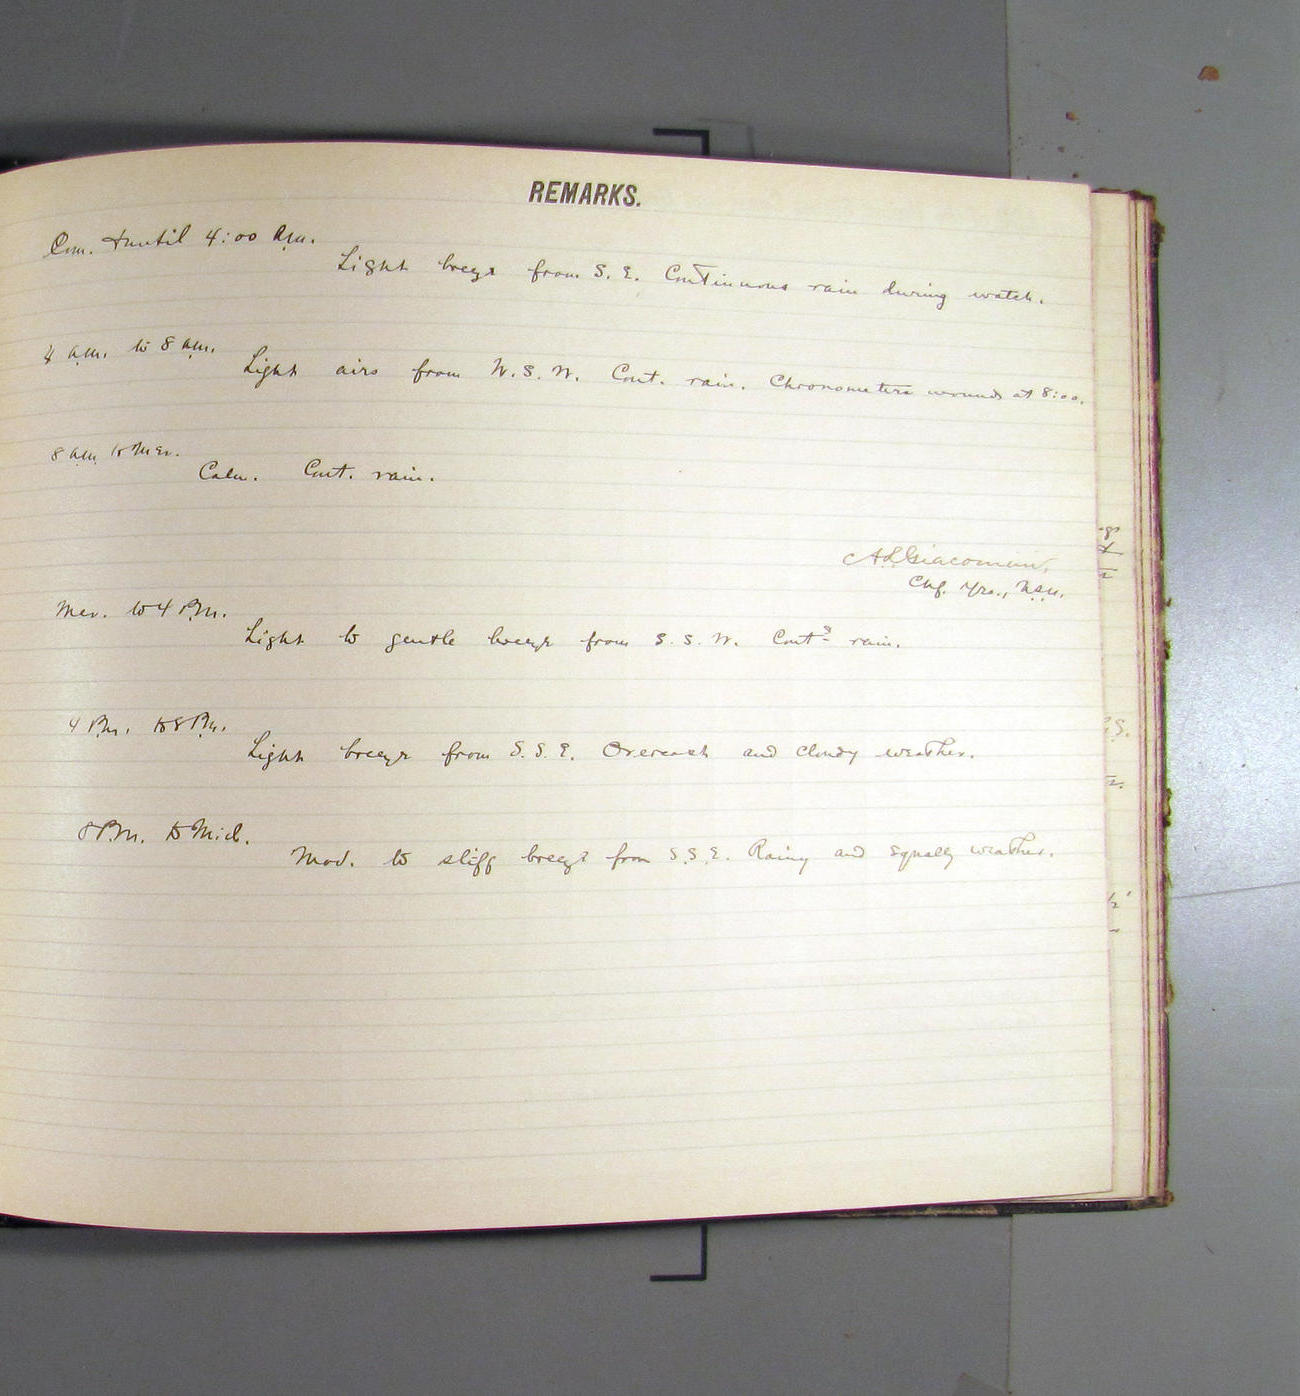 REMARKS.
Com. & until 4:00 a.m.
Light breeze from S. E. Continuous rain during watch.
4 a.m. to 8 a.m.
Light airs from W.S.W. Cont. rain. Chronometers wound at 8:00.
8 a.m. to Mer.
Calm. Cont. rain.
A.L. Giacomini,
U.S.N.
Mer. to 4 P.M.
Light to gentle breeze from S.S.W. Cont'g rain.
4 P.M. to 8 P.M.
Light breeze from S.S.E. Overcast and cloudy weather.
8 P.M. to Mid.
Mod. to stiff breeze from S.S.E. Rainy and squally weather.